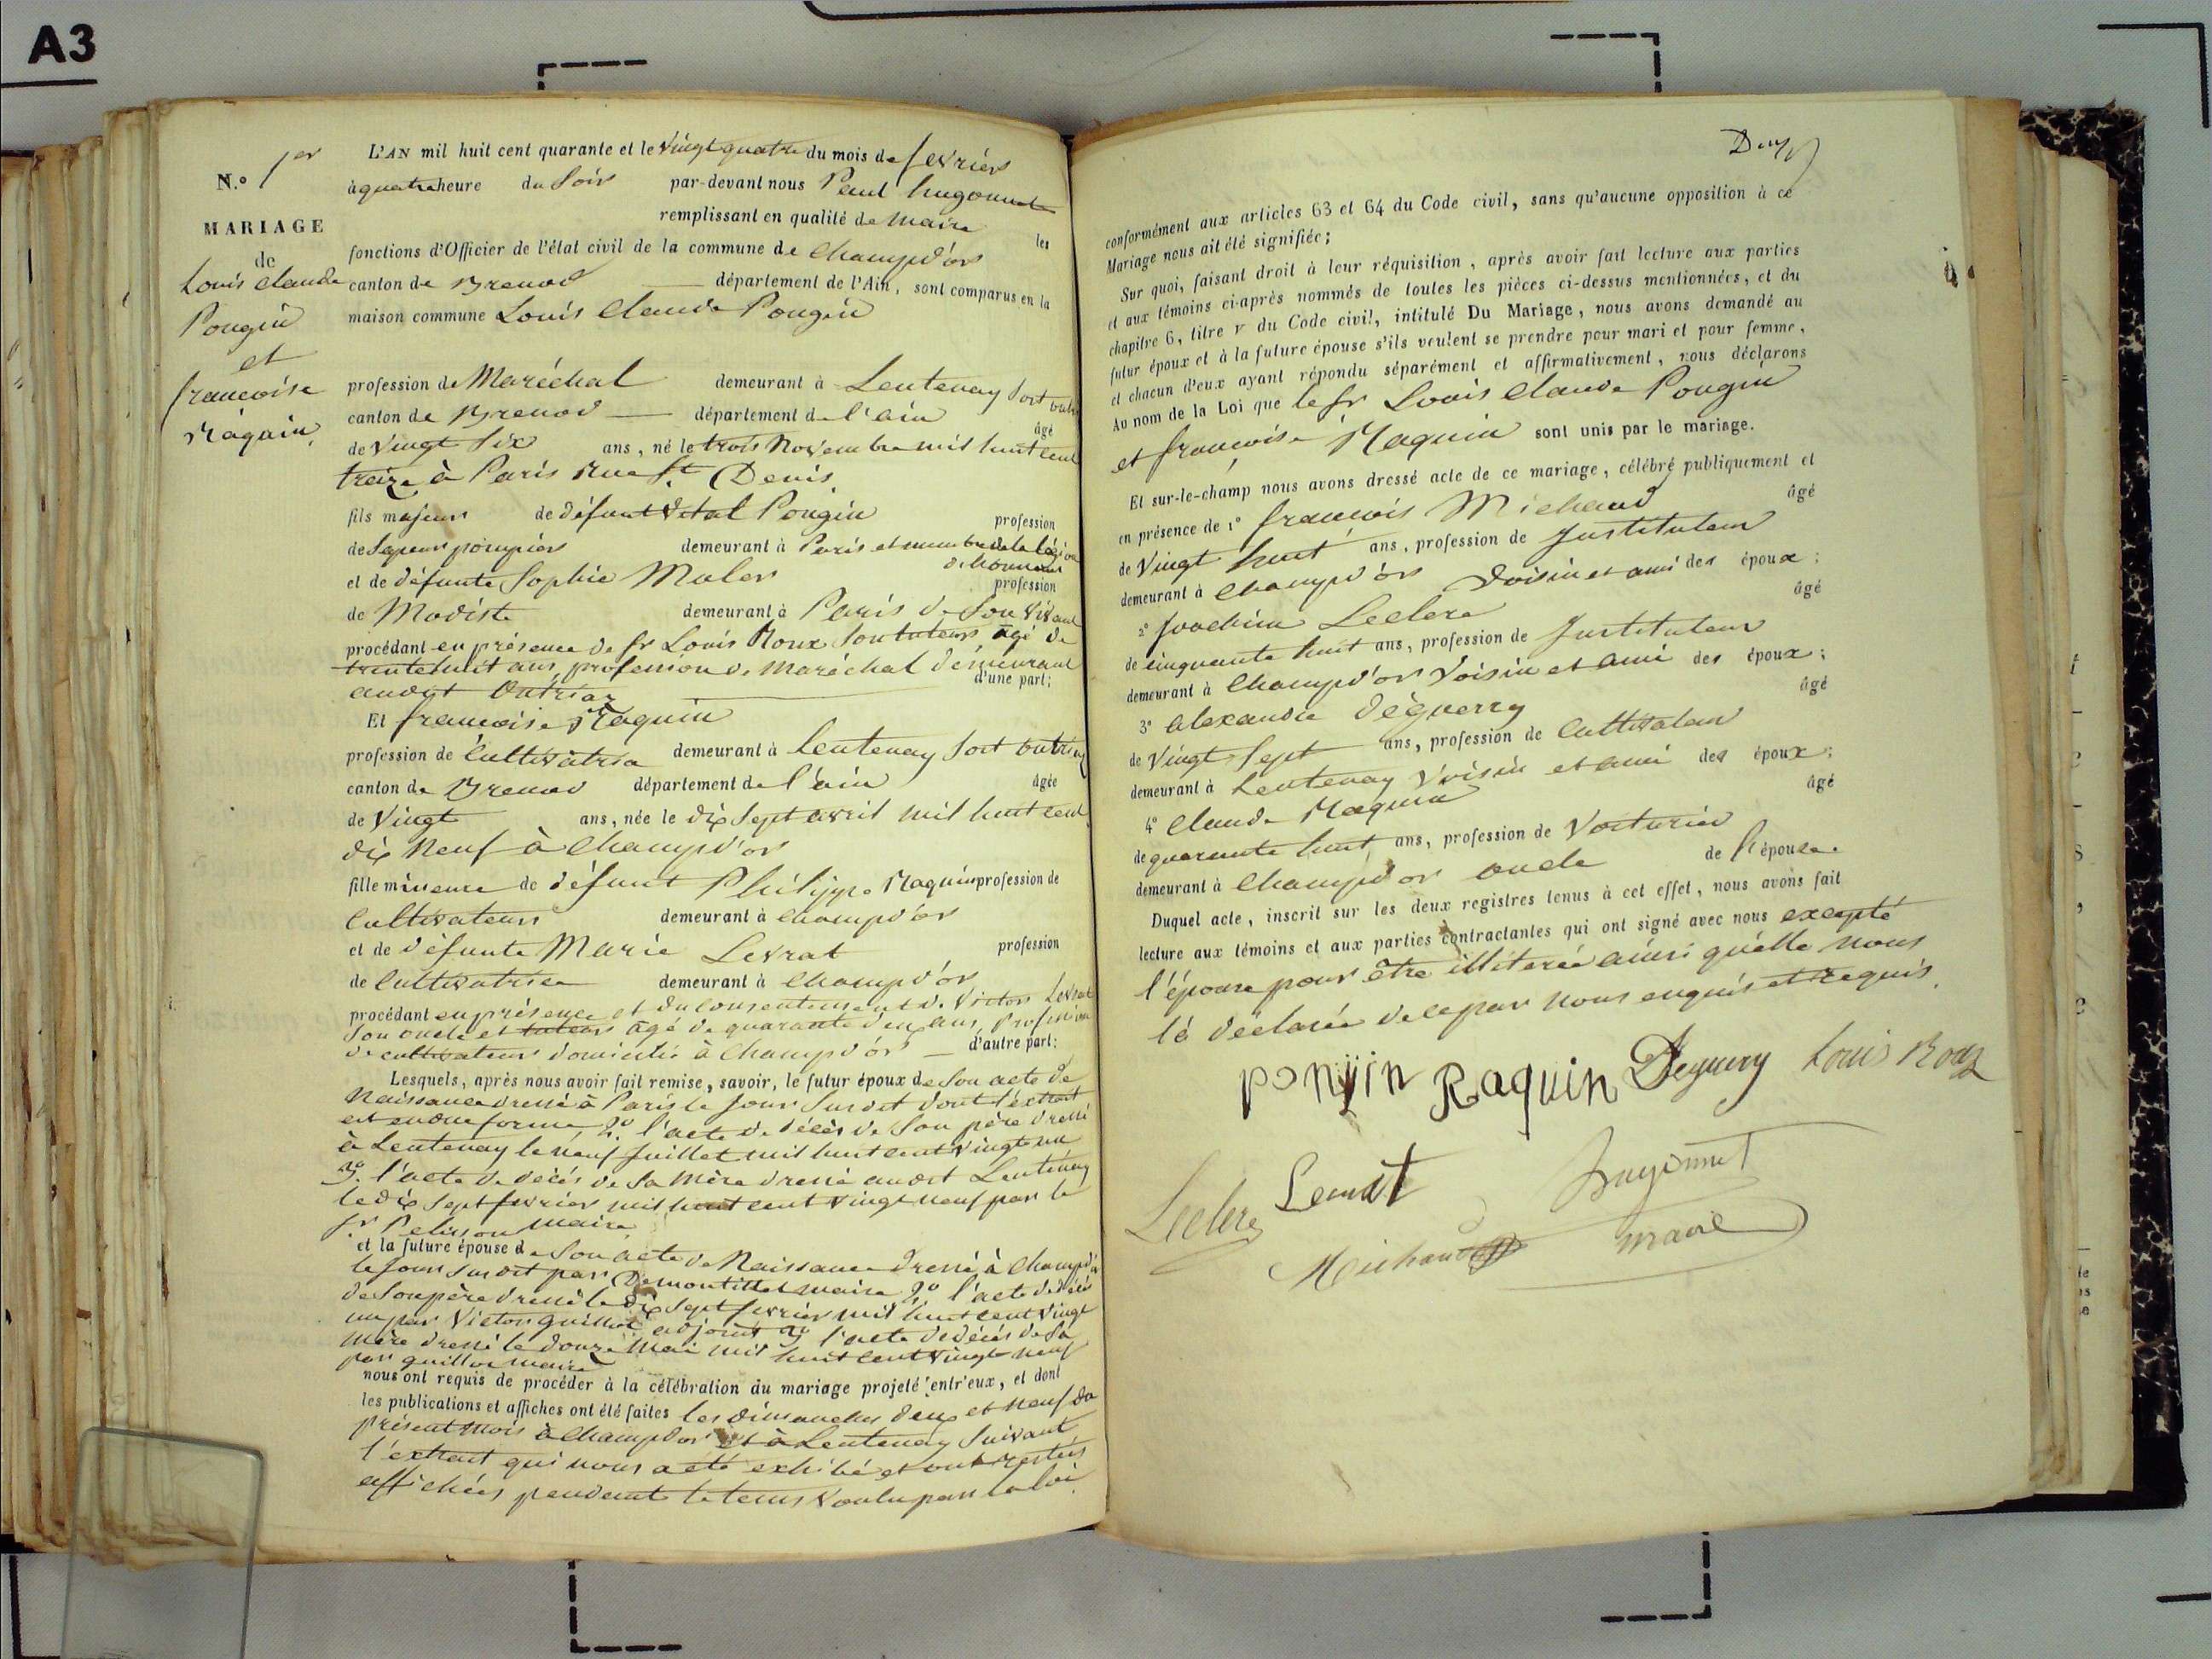 A3
N.º 1er
MARIAGE
de
Louis Claude
Pougin
et
françoise
Raquin
L'AN mil huit cent quarante et le vingt quatre du mois de fevrier
à quatre heure du Soir par-devant nous Paul hugonnet
remplissant en qualité de maire les
fonctions d'Officier de l'état civil de la commune de Champd'or
canton de Brenod département de l'Ain, sont comparus en la
maison commune Louis Claude Pougin
profession de Maréchal demeurant à Lentenay Sort outriaz
canton de Brenod département de l'ain âgé
de vingt Six ans, né le trois Novembre mil huit cent
treize à Paris Rue St. Denis
fils majeur de défunt Vital Pougin profession
de Sapeur pompier demeurant à Paris et membre de la légion
d'honneur
et de défunte Sophie Maler profession
de Modiste demeurant à Paris de Son vivant
procédant en présence de Sr Louis Roux Son tuteur âgé de
trente huit ans, profession de Maréchal demeurant
audit Outriaz d'une part;
Et françoise Raquin
profession de Cultivatrice demeurant à Lentenay Sort outriaz
canton de Brenod département de l'ain âgée
de Vingt ans, née le dix Sept avril mil huit cent
dix Neuf à Champd'or
fille mineure de défunt Philippe Raquin profession de
Cultivateur demeurant à Champd'or
et de défunte Marie Levrat profession
de Cultivatrice demeurant à Champd'or
procédant en présence et du consentement de Victor Levrat
Son oncle et tuteur âgé de quarante deux ans, Profession
de cultivateur domicilié à Champd'or d'autre part:
Lesquels, après nous avoir fait remise, savoir, le futur époux de Son acte de
Naissance dressé à Paris le jour Susdit dont l'extrait
est en due forme, 2º l'acte de décès de Son père dressé
à Lentenay le neuf Juillet mil huit cent vingt un
3º. l'acte de décès de Sa Mère dressé audit Lentenay
le dix Sept fevrier mil huit cent vingt neuf par le
Sr. Pelisson maire
et la future épouse de Son acte de Naissance dressé à Champd'or
le jour Susdit par Demontillet maire 2º l'acte de décès
de Son père dressé le dix Sept fevrier mil huit cent vingt
un par Victor guillot adjoint 3º l'acte de décès de Sa
Mère dressé le douze Mai mil huit cent vingt neuf
par guillot maire
nous ont requis de procéder à la célébration du mariage projeté entr'eux, et dont
les publications et affiches ont été faites les dimanches deux et neuf du
présent mois à Champdor et à Lentenay Suivant
l'extrait qui nous a été exhibé et ont restés
affichées pendant le tems voulu par la loi.
Deux
conformément aux articles 63 et 64 du Code civil, sans qu'aucune opposition à ce
Mariage nous ait été signifiée;
Sur quoi, faisant droit à leur réquisition, après avoir fait lecture aux parties
et aux témoins ci-après nommés de toutes les pièces ci-dessus mentionnées, et du
chapitre 6, titre v du Code civil, intitulé Du Mariage, nous avons demandé au
futur époux et à la future épouse s'ils veulent se prendre pour mari et pour femme,
et chacun d'eux ayant répondu séparément et affirmativement, nous déclarons
Au nom de la Loi que le Sr Louis Claude Pougin
et françoise Raquin sont unis par le mariage.
Et sur-le-champ nous avons dressé acte de ce mariage, célébré publiquement et
en présence de 1º françois Michaud âgé
de Vingt huit ans, profession de Instituteur
demeurant à Champd'or voisin et ami des époux;
2º Joachim Leclerc âgé
de cinquante huit ans, profession de Instituteur
demeurant à Champd'or Voisin et ami des époux;
3º alexandre Déguerry âgé
de Vingt Sept ans, profession de Cultivateur
demeurant à Lentenay Voisin et ami des époux;
4º Claude Raquin âgé
de quarante huit ans, profession de Voiturier
demeurant à Champd'or oncle de l'épouse.
Duquel acte, inscrit sur les deux registres tenus à cet effet, nous avons fait
lecture aux témoins et aux parties contractantes qui ont signé avec nous excepté
l'épouse pour être illiterée ainsi qu'elle nous
la déclarée de ce par nous enquis et requis.
ponjin Raquin Deguerry Louis Roux
Leclerc Hugonnet
Michaud maire